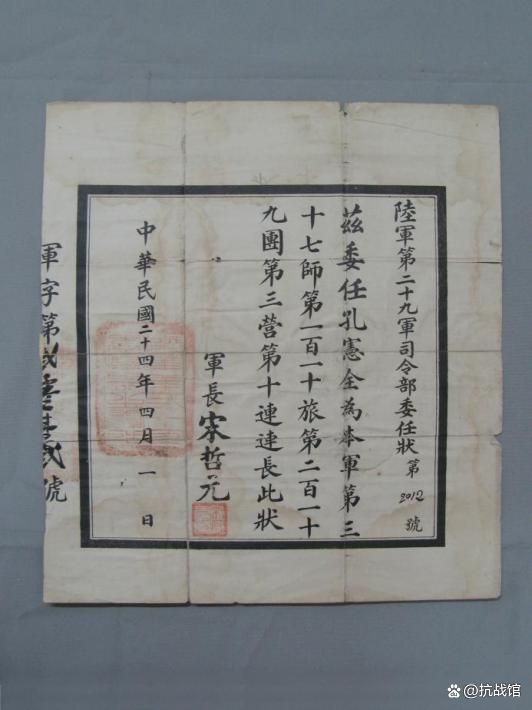 陸軍第二十九軍司令部委任狀第2012號
茲委任孔憲全為本軍第三
十七師第一百一十旅第二百一十
九團第三營第十連連長此狀
軍長宋哲元
中華民國二十四年四月一日
軍字第貳零壹貳號
@抗战馆